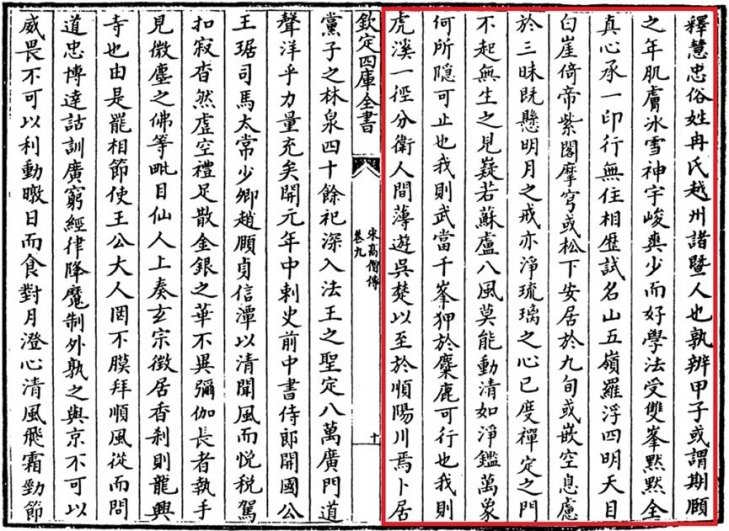 釋慧忠俗姓冉氏越州諸暨人也孰辨甲子或謂期頤
之年肌膚冰雪神宇峻奭少而好學法受雙峯黙黙全
真心承一印行無住相歴試名山五嶺羅浮四明天目
白崖倚帝紫閣摩穹或松下安居於九旬或嵌空息慮
於三昧既懸明月之戒亦淨琉璃之心已度禪定之門
不起無生之見嶷若蘇盧八風莫能動清如淨鑑萬象
何所隱可止也我則武當千峯狎於麋鹿可行也我則
虎溪一徑分衛人間薄遊吳楚以至於順陽川焉卜居
欽定四庫全書
宋高僧傳
卷九
十
黨子之林泉四十餘祀深入法王之聖定八萬廣門道
聲洋乎力量充矣開元年中刺史前中書侍郎開國公
王琚司馬太常少卿趙頤貞信潭以清聞風而悅稅駕
扣寂杳然虛空禮足散金銀之華不異彌伽長者執手
見微塵之佛等毗目仙人上奏玄宗徵居香刹則龍興
寺也由是罷相節使王公大人罔不膜拜順風從而問
道忠博達詁訓廣窮經律降魔制外孰之與京不可以
威畏不可以利動暾日而食對月澄心清風飛霜勁節